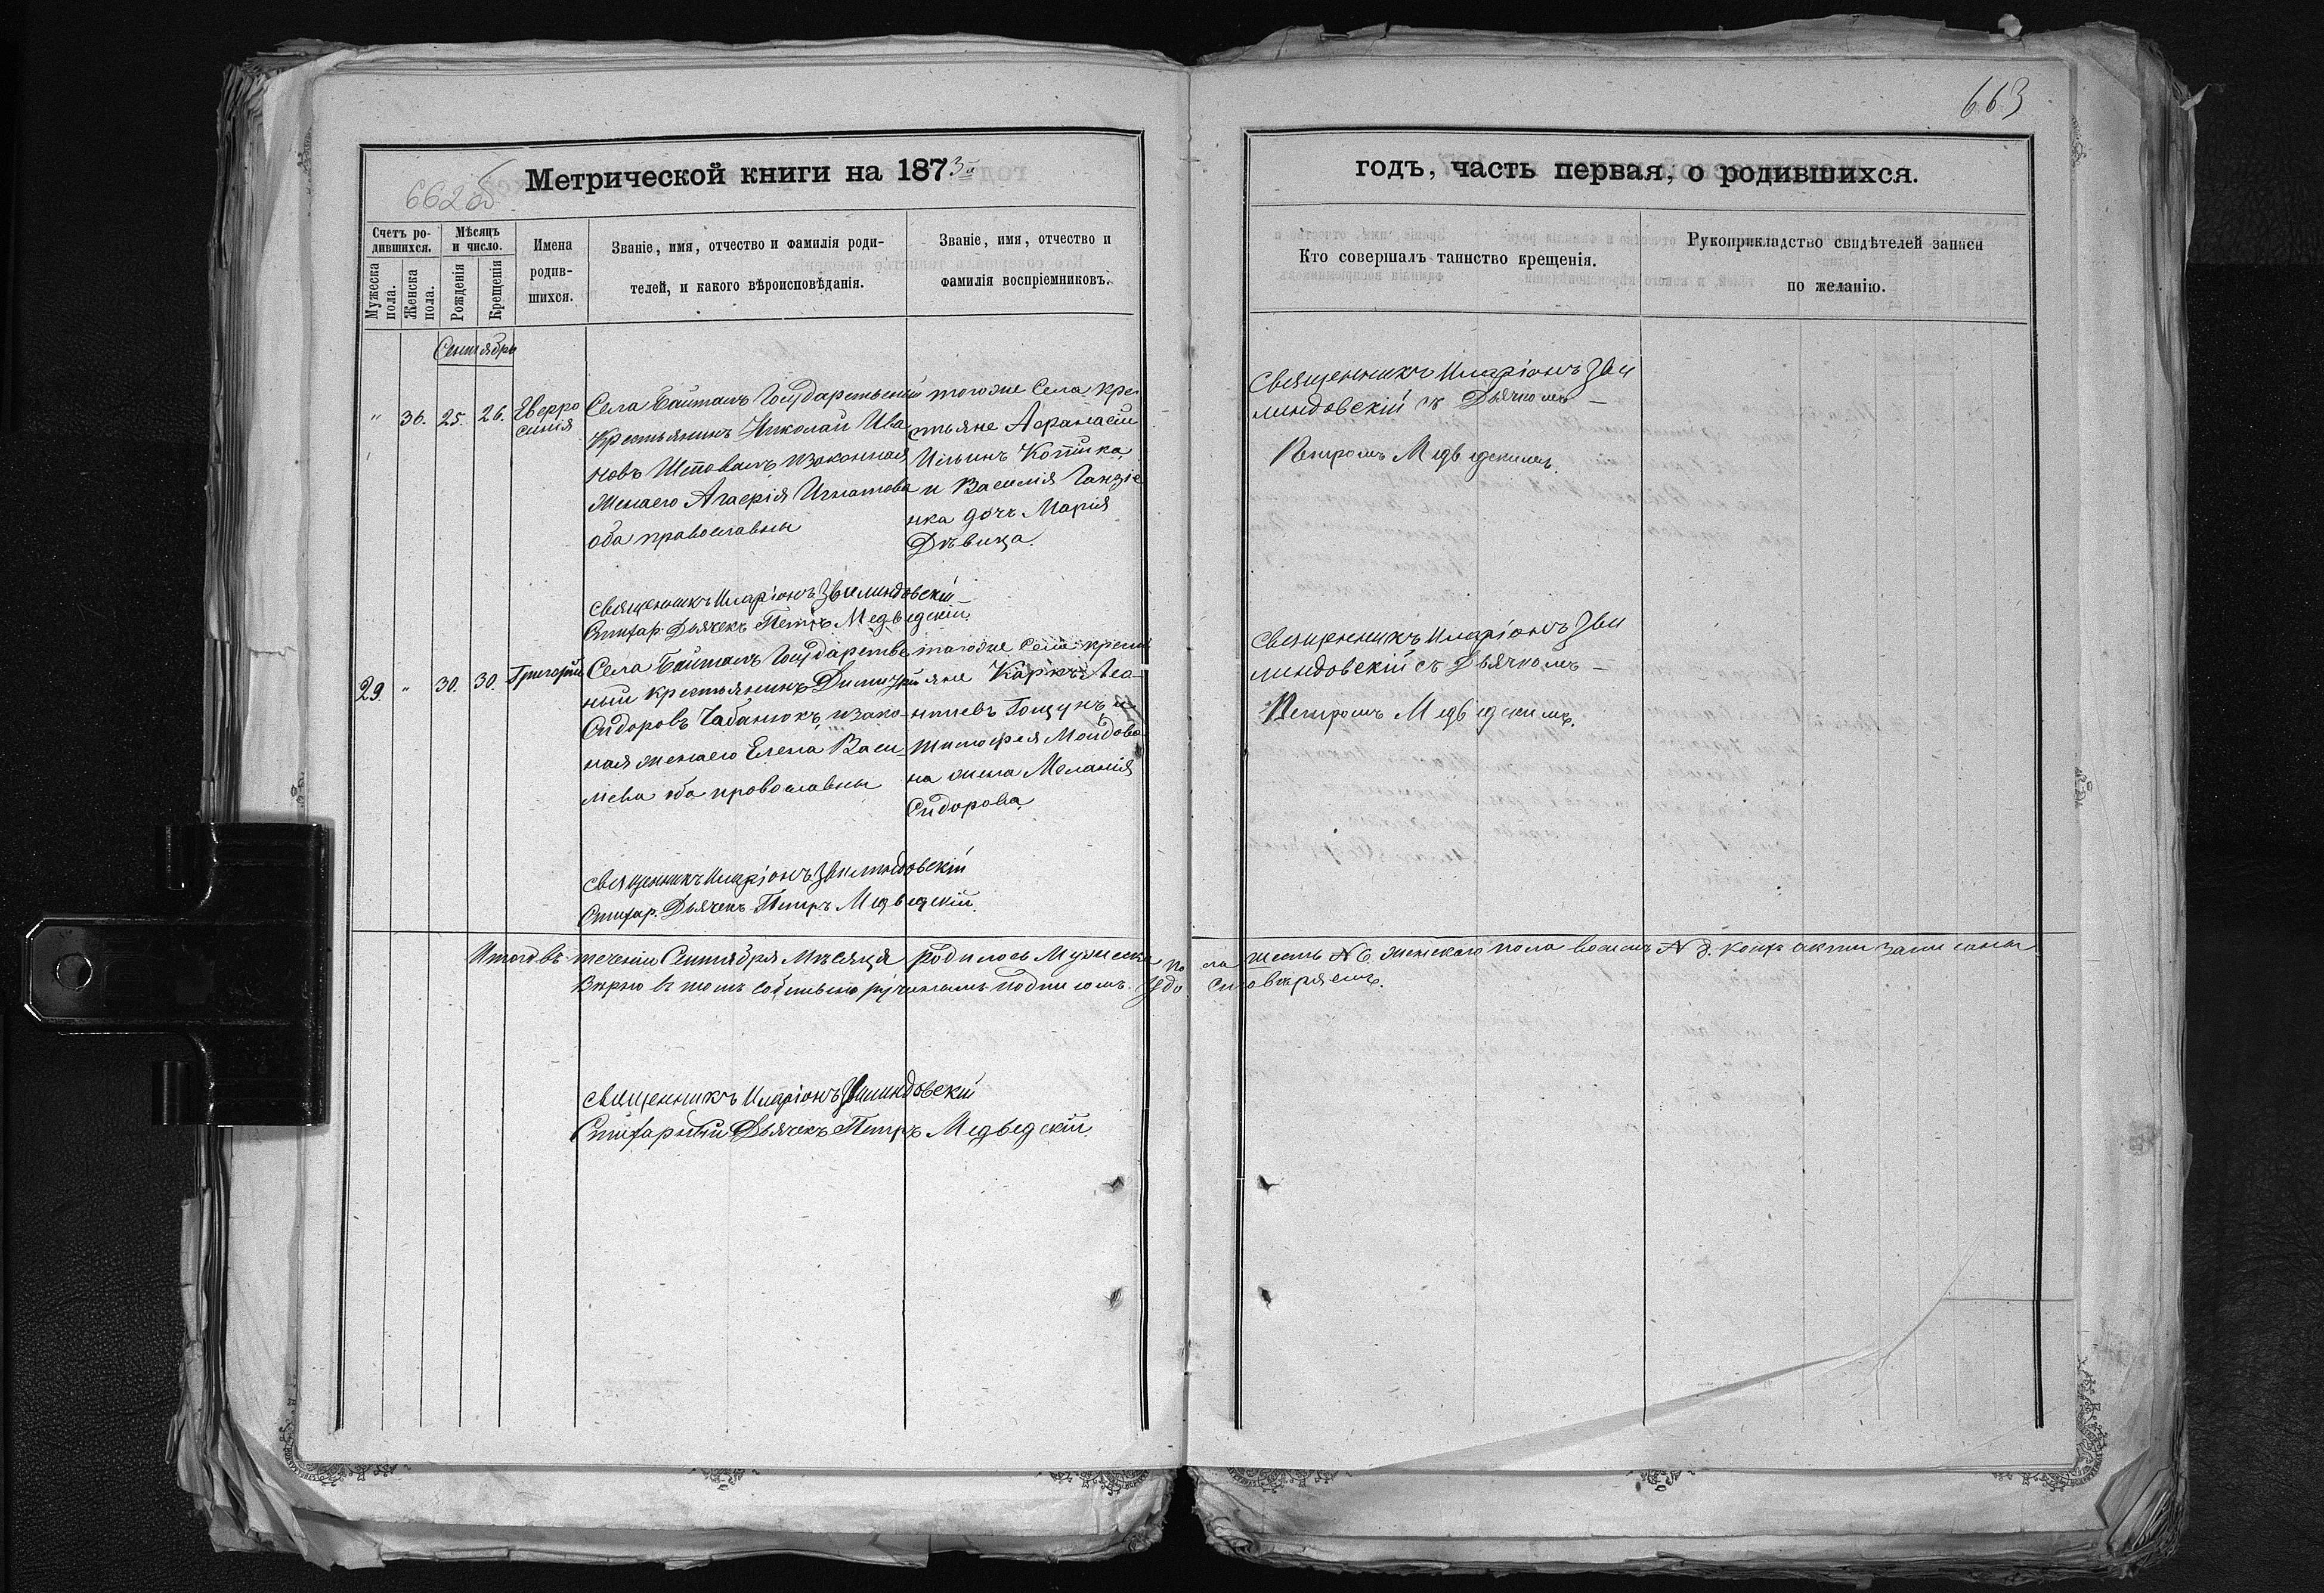 663
662 об
Метрической книги на 1873й
годъ, часть первая, о родившихся.
Счетъ ро-
дившихся.
Мужеска
пола.
Женска
пола.
Мѣсяцъ
и число.
Рожденія
Крещенія
Имена
родив-
шихся.
Званіе, имя, отчество и фамилія роди-
телей, и какого вѣроисповѣданія.
Званіе, имя, отчество и
фамилія воспріемниковъ.
Кто совершалъ таинство крещенія.
Рукоприкладство свидѣтелей записи
по желанію.
Сентябрь
" 36. 25. 26.
Евфро
синія
Села Байталъ Государственый
Крестьянинъ Николай Ива
новъ изаконная
женаего Агафія Игнатова
оба православны
тогоже Села кре
стьяне Афанасій
Ильинъ
и Василія
дочь Марія
Дѣвица.
Священникъ Иларіонъ Зви
линдовскій съ Дьячкомъ –
Петромъ Медведскимъ.
Священникъ Иларіонъ Звилиндовскій
Стихар. Дьячекъ Петръ Медведскій.
29. " 30. 30. Григорій
Села Байталъ Государстве
ный крестьянинъ Димитрій
Сидоровъ Чабанюкъ, изако-
ная женаего Елена Васи-
ліева оба православны
тогоже Села крест
яне Леон-
тіевъ и
Тимофея Молдова
на жена Меланія
Сидорова
Священникъ Иларіонъ Зви
линдовскій съ Дьячкомъ –
Петромъ Медведскимъ.
Священникъ Иларіонъ Звилиндовскій
Стихар. Дьячекъ Петръ Медведскій.
Итоговъ течении Сентября Мѣсяца родилось Мужеска пола шесть № 6. женскаго пола восемь № 8. акти записаны
Вѣрно в томъ собственоручнымъ подписомъ удостовѣряемъ.
Священникъ Иларіонъ Звилиндовскій
Стихарный Дьячекъ Петръ Медведскій.